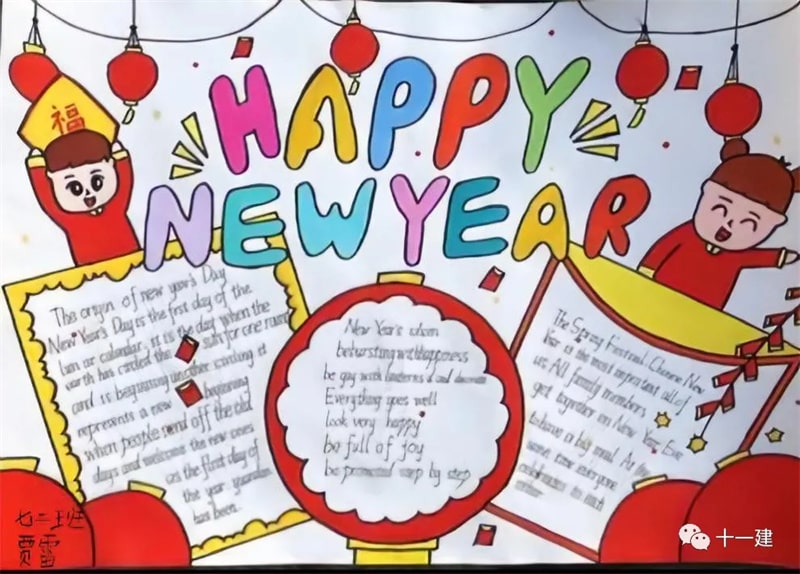 福
HAPPY
NEW YEAR
The origin of new year's Day
New Year's Day is the first day of the
or calendar. it is the day when the
earth has circled the sun for one round
and is beginning another circling it
represents a new beginning
when people send off the old
days and welcome the new ones
as the first day of
the year
has been
New Year's
be bursting with happiness
be gay with lanterns and
Everything goes well
look very happy
be full of joy
be promoted step by step
The Spring Festival, Chinese New
Year is the most important all of
us. All family members
get together on New Year Eve
to have a big meal. At the
same time everyone
celebrates to each
other
七二班
贾雷
十一建